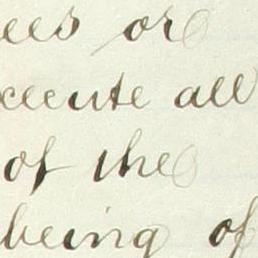 ees or
xecute all
of the
being of